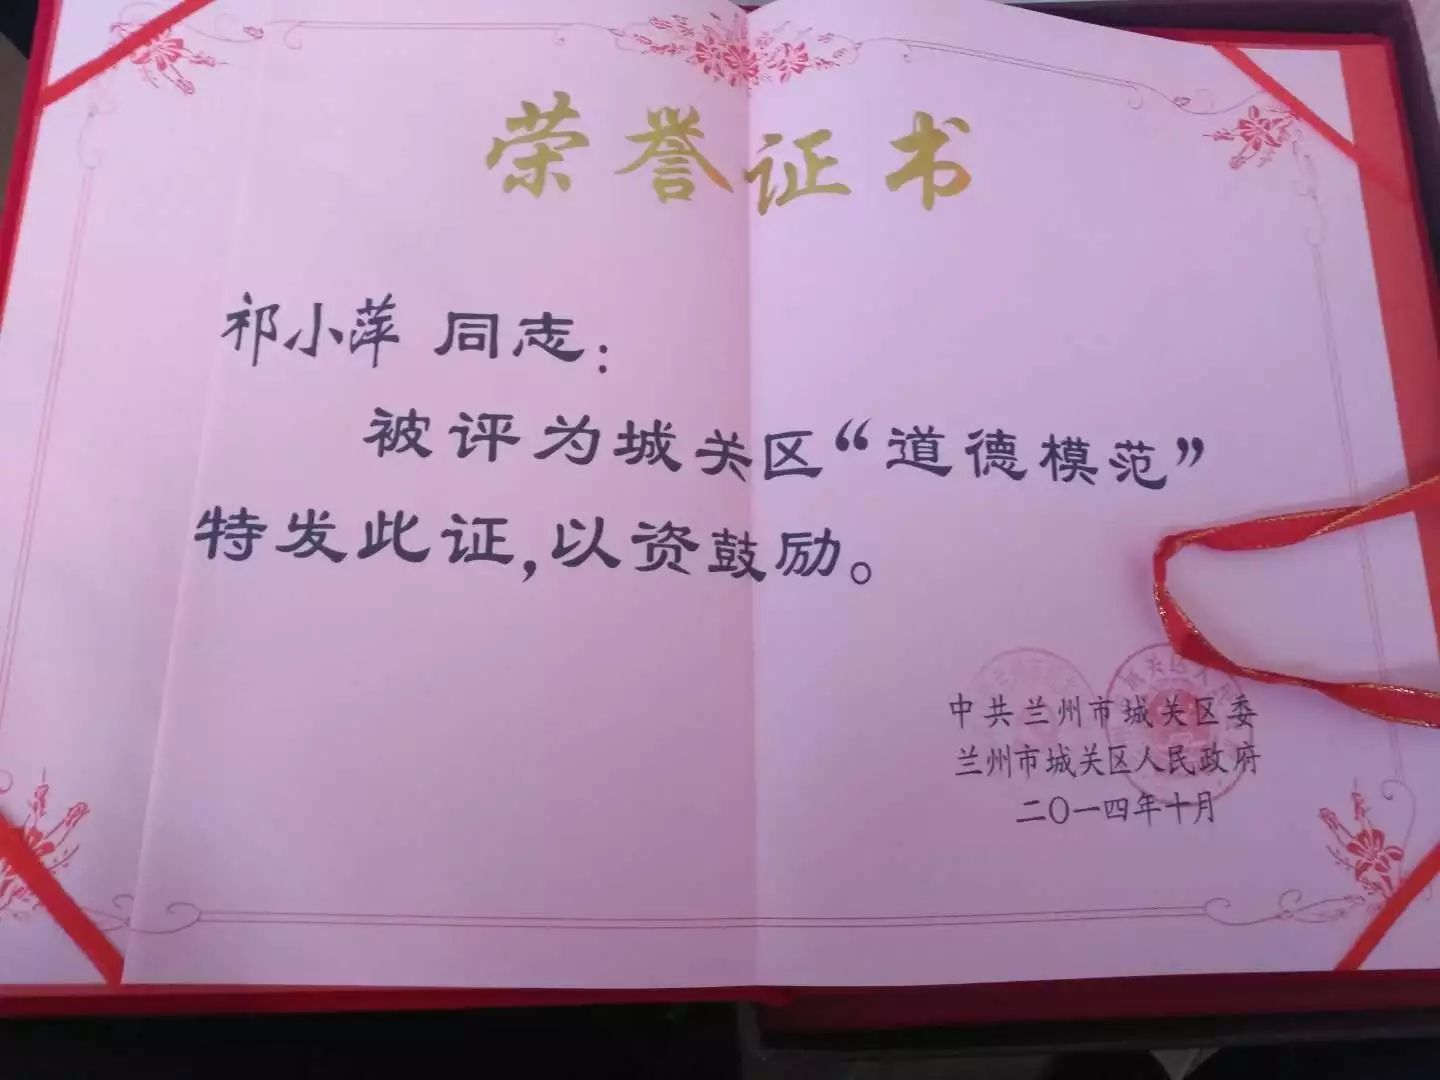 荣誉证书
祁小萍 同志：
被评为城关区“道德模范”
特发此证，以资鼓励。
中共兰州市城关区委
兰州市城关区人民政府
二〇一四年十月